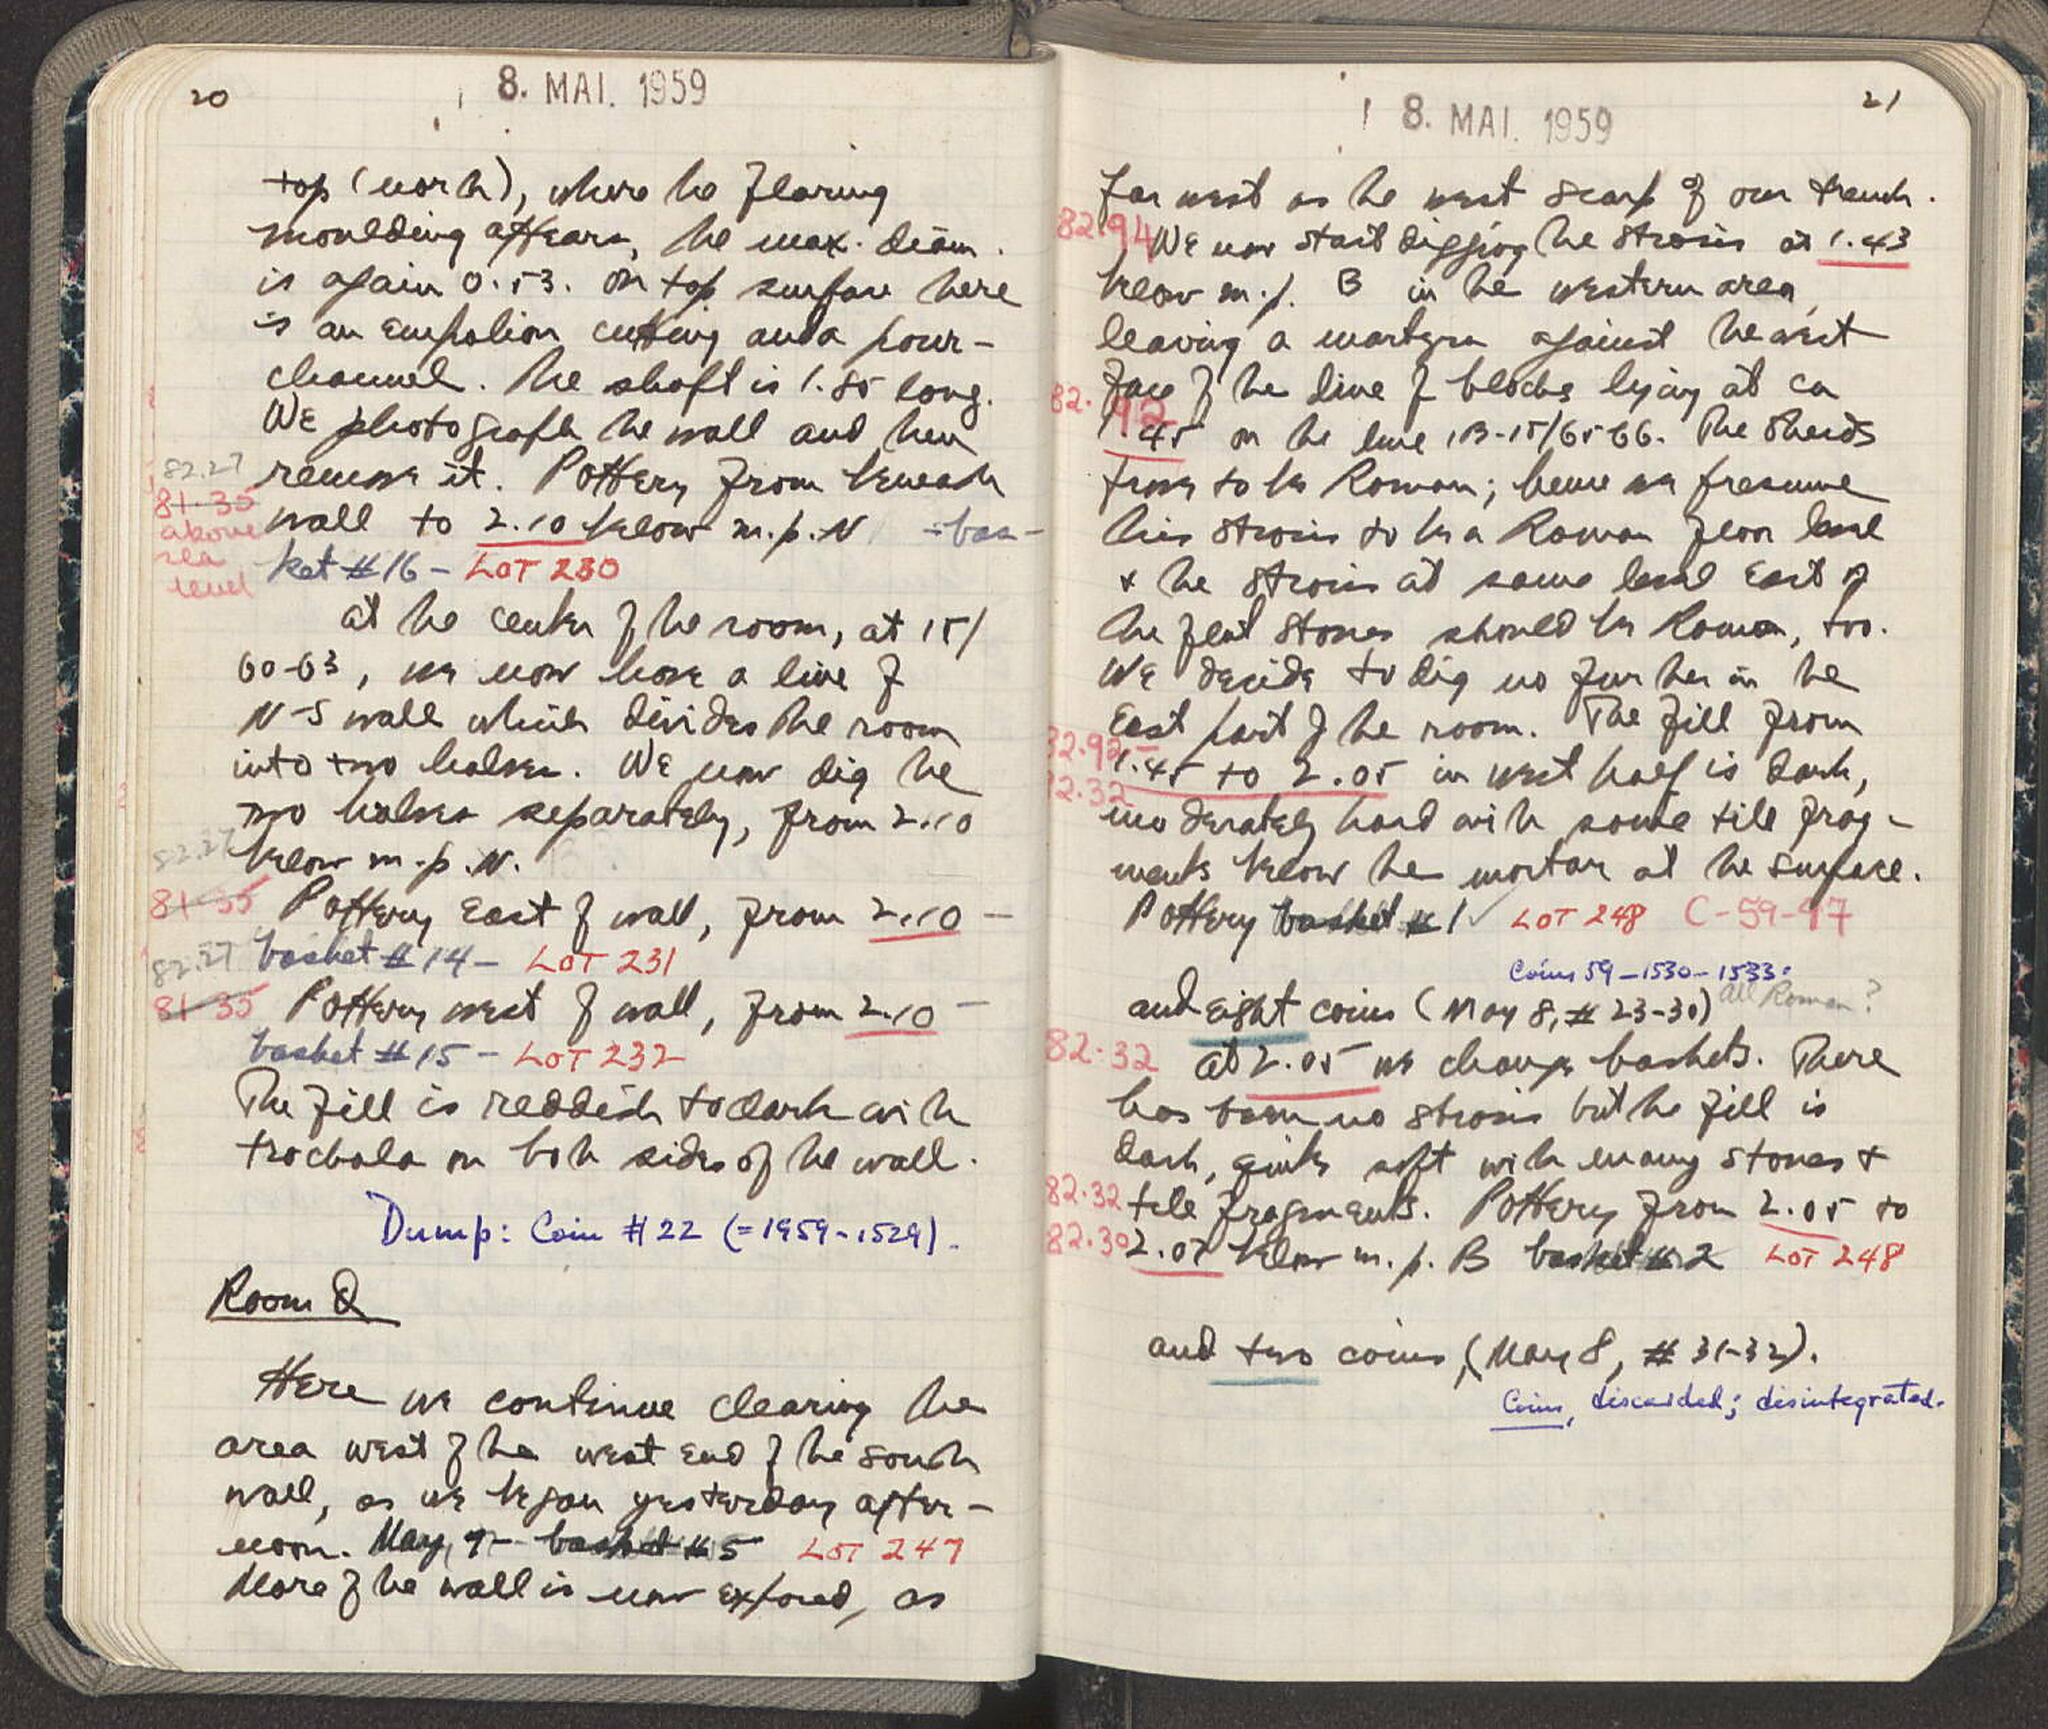 20
8. MAI. 1959
top (north), where the flaring
moulding appears, the max. diam.
is again 0.53. On top surface here
is an empolion cutting and a pour-
channel. The shaft is 1.85 long.
We photograph the wall and then
remove it. Pottery from beneath
82.27
81.35
above
sea
level
wall to 2.10 below m.p. N -bas-
ket #16 - LOT 230
At the center of the room, at 15/
60-63, we now have a line of
N-S wall which divides the room
into two halves. We now dig the
two halves separately, from 2.10
82.27
below m.p. N.
81.35 Pottery East of wall, from 2.10 -
82.27 basket #14 - LOT 231
81.35 Pottery west of wall, from 2.10 -
basket #15 - LOT 232
The fill is reddish to dark with
trochala on both sides of the wall.
Dump: Coin #22 (=1959-1529).
Room Q
Here we continue clearing the
area west of the west end of the south
wall, as we began yesterday after-
noon. May 7- basket #5 LOT 247
More of the wall is now exposed, as
21
8. MAI. 1959
far west as the west scarp of our trench.
82.94 We now start digging the strosis at 1.43
below m.p. B in the western area,
leaving a martyra against the west
face of the line of blocks lying at ca
82.92
1.45 on the line, B-15/65-66. The sherds
prove to be Roman; hence we presume
this strosis to be a Roman floor level
& the strosis at same level East of
the flat stones should be Roman, too.
We decide to dig no further in the
East part of the room. The fill from
82.92-
82.32
1.45 to 2.05 in west half is dark,
moderately hard with some tile frag-
ments below the mortar at the surface.
Pottery basket #1 ✓ LOT 248 C-59-47
Coins 59-1530-1533.
and eight coins (May 8, #23-30) all Roman?
82.32 At 2.05 we change baskets. There
has been no strosis but the fill is
dark, quite soft with many stones &
82.32 tile fragments. Pottery from 2.05 to
82.30 2.07 below m.p. B basket #2 LOT 248
and two coins, (May 8, #31-32).
Coins, discarded; disintegrated.